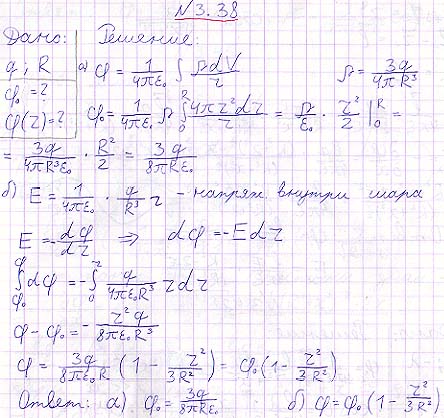 №3.38
Дано: Решение:
q; R а) φ = 1/(4πε₀) ∫ ρdV/r ρ = 3q/(4πR³)
φ₀ = ?
φ(r) = ? φ₀ = 1/(4πε₀) ρ ∫₀ᴿ 4πr²dr/r = ρ/ε₀ · r²/2 |₀ᴿ =
= 3q/(4πR³ε₀) · R²/2 = 3q/(8πRε₀)
б) E = 1/(4πε₀) · q/R³ r - напряж. внутри шара
E = -dφ/dr ⇒ dφ = -Edr
∫_φ₀^φ dφ = -∫₀ʳ q/(4πε₀R³) r dr
φ - φ₀ = -r²q/(8πε₀R³)
φ = 3q/(8πε₀R) (1 - r²/(3R²)) = φ₀(1 - r²/(3R²))
Ответ: а) φ₀ = 3q/(8πRε₀) б) φ = φ₀(1 - r²/(3R²))